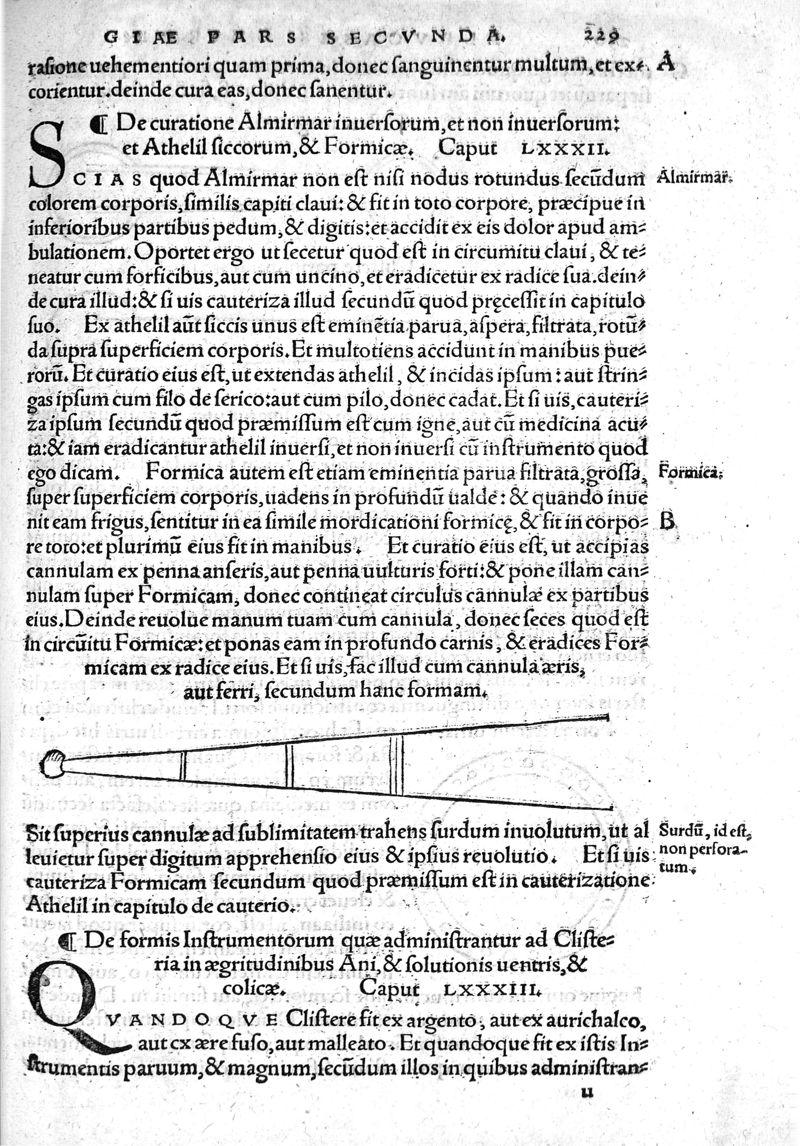 GIAE PARS SECVNDA. 229
rasione uehementiori quam prima, donec sanguinentur multum, et ex⸗ A
corientur. deinde cura eas, donec sanentur.
¶ De curatione Almirmar inuersorum, et non inuersorum:
et Athelil siccorum, & Formicæ. Caput LXXXII.
SCIAS quod Almirmar non est nisi nodus rotundus secūdum Almirmar.
colorem corporis, similis capiti claui: & fit in toto corpore, præcipue in
inferioribus partibus pedum, & digitis: et accidit ex eis dolor apud am⸗
bulationem. Oportet ergo ut secetur quod est in circumitu claui, & te⸗
neatur cum forficibus, aut cum uncino, et eradicetur ex radice sua. dein⸗
de cura illud: & si uis cauteriza illud secundū quod pręcessit in capitulo
suo. Ex athelil aūt siccis unus est eminētia parua, aspera, filtrata, rotū⸗
da supra superficiem corporis. Et multotiens accidunt in manibus pue⸗
rorū. Et curatio eius est, ut extendas athelil, & incidas ipsum: aut strin⸗
gas ipsum cum filo de serico: aut cum pilo, donec cadat. Et si uis, cauteri⸗
za ipsum secundū quod præmissum est cum igne, aut cū medicina acu⸗
ta: & iam eradicantur athelil inuersi, et non inuersi cū instrumento quod
ego dicam. Formica autem est etiam eminentia parua filtrata, grossa, Formica.
super superficiem corporis, uadens in profundū ualde: & quando inue
nit eam frigus, sentitur in ea simile mordicationi formicę, & fit in corpo⸗ B
re toto: et plurimū eius fit in manibus. Et curatio eius est, ut accipias
cannulam ex penna anseris, aut penna uulturis forti: & pone illam can⸗
nulam super Formicam, donec contineat circulus cannulæ ex partibus
eius. Deinde reuolue manum tuam cum cannula, donec seces quod est
in circūitu Formicæ: et ponas eam in profundo carnis, & eradices For⸗
micam ex radice eius. Et si uis, fac illud cum cannula æris,
aut ferri, secundum hanc formam.
Sit superius cannulæ ad sublimitatem trahens surdum inuolutum, ut al Surdū, id est,
leuietur super digitum apprehensio eius & ipsius reuolutio. Et si uis non perfora-
cauteriza Formicam secundum quod præmissum est in cauterizatione tum.
Athelil in capitulo de cauterio.
¶ De formis Instrumentorum quæ administrantur ad Cliste⸗
ria in ægritudinibus Ani, & solutionis uentris, &
colicæ. Caput LXXXIII.
QVANDOQVE Clistere fit ex argento, aut ex aurichalco,
aut cx ære fuso, aut malleato. Et quandoque fit ex istis In⸗
strumentis paruum, & magnum, secūdum illos in quibus administran⸗
u